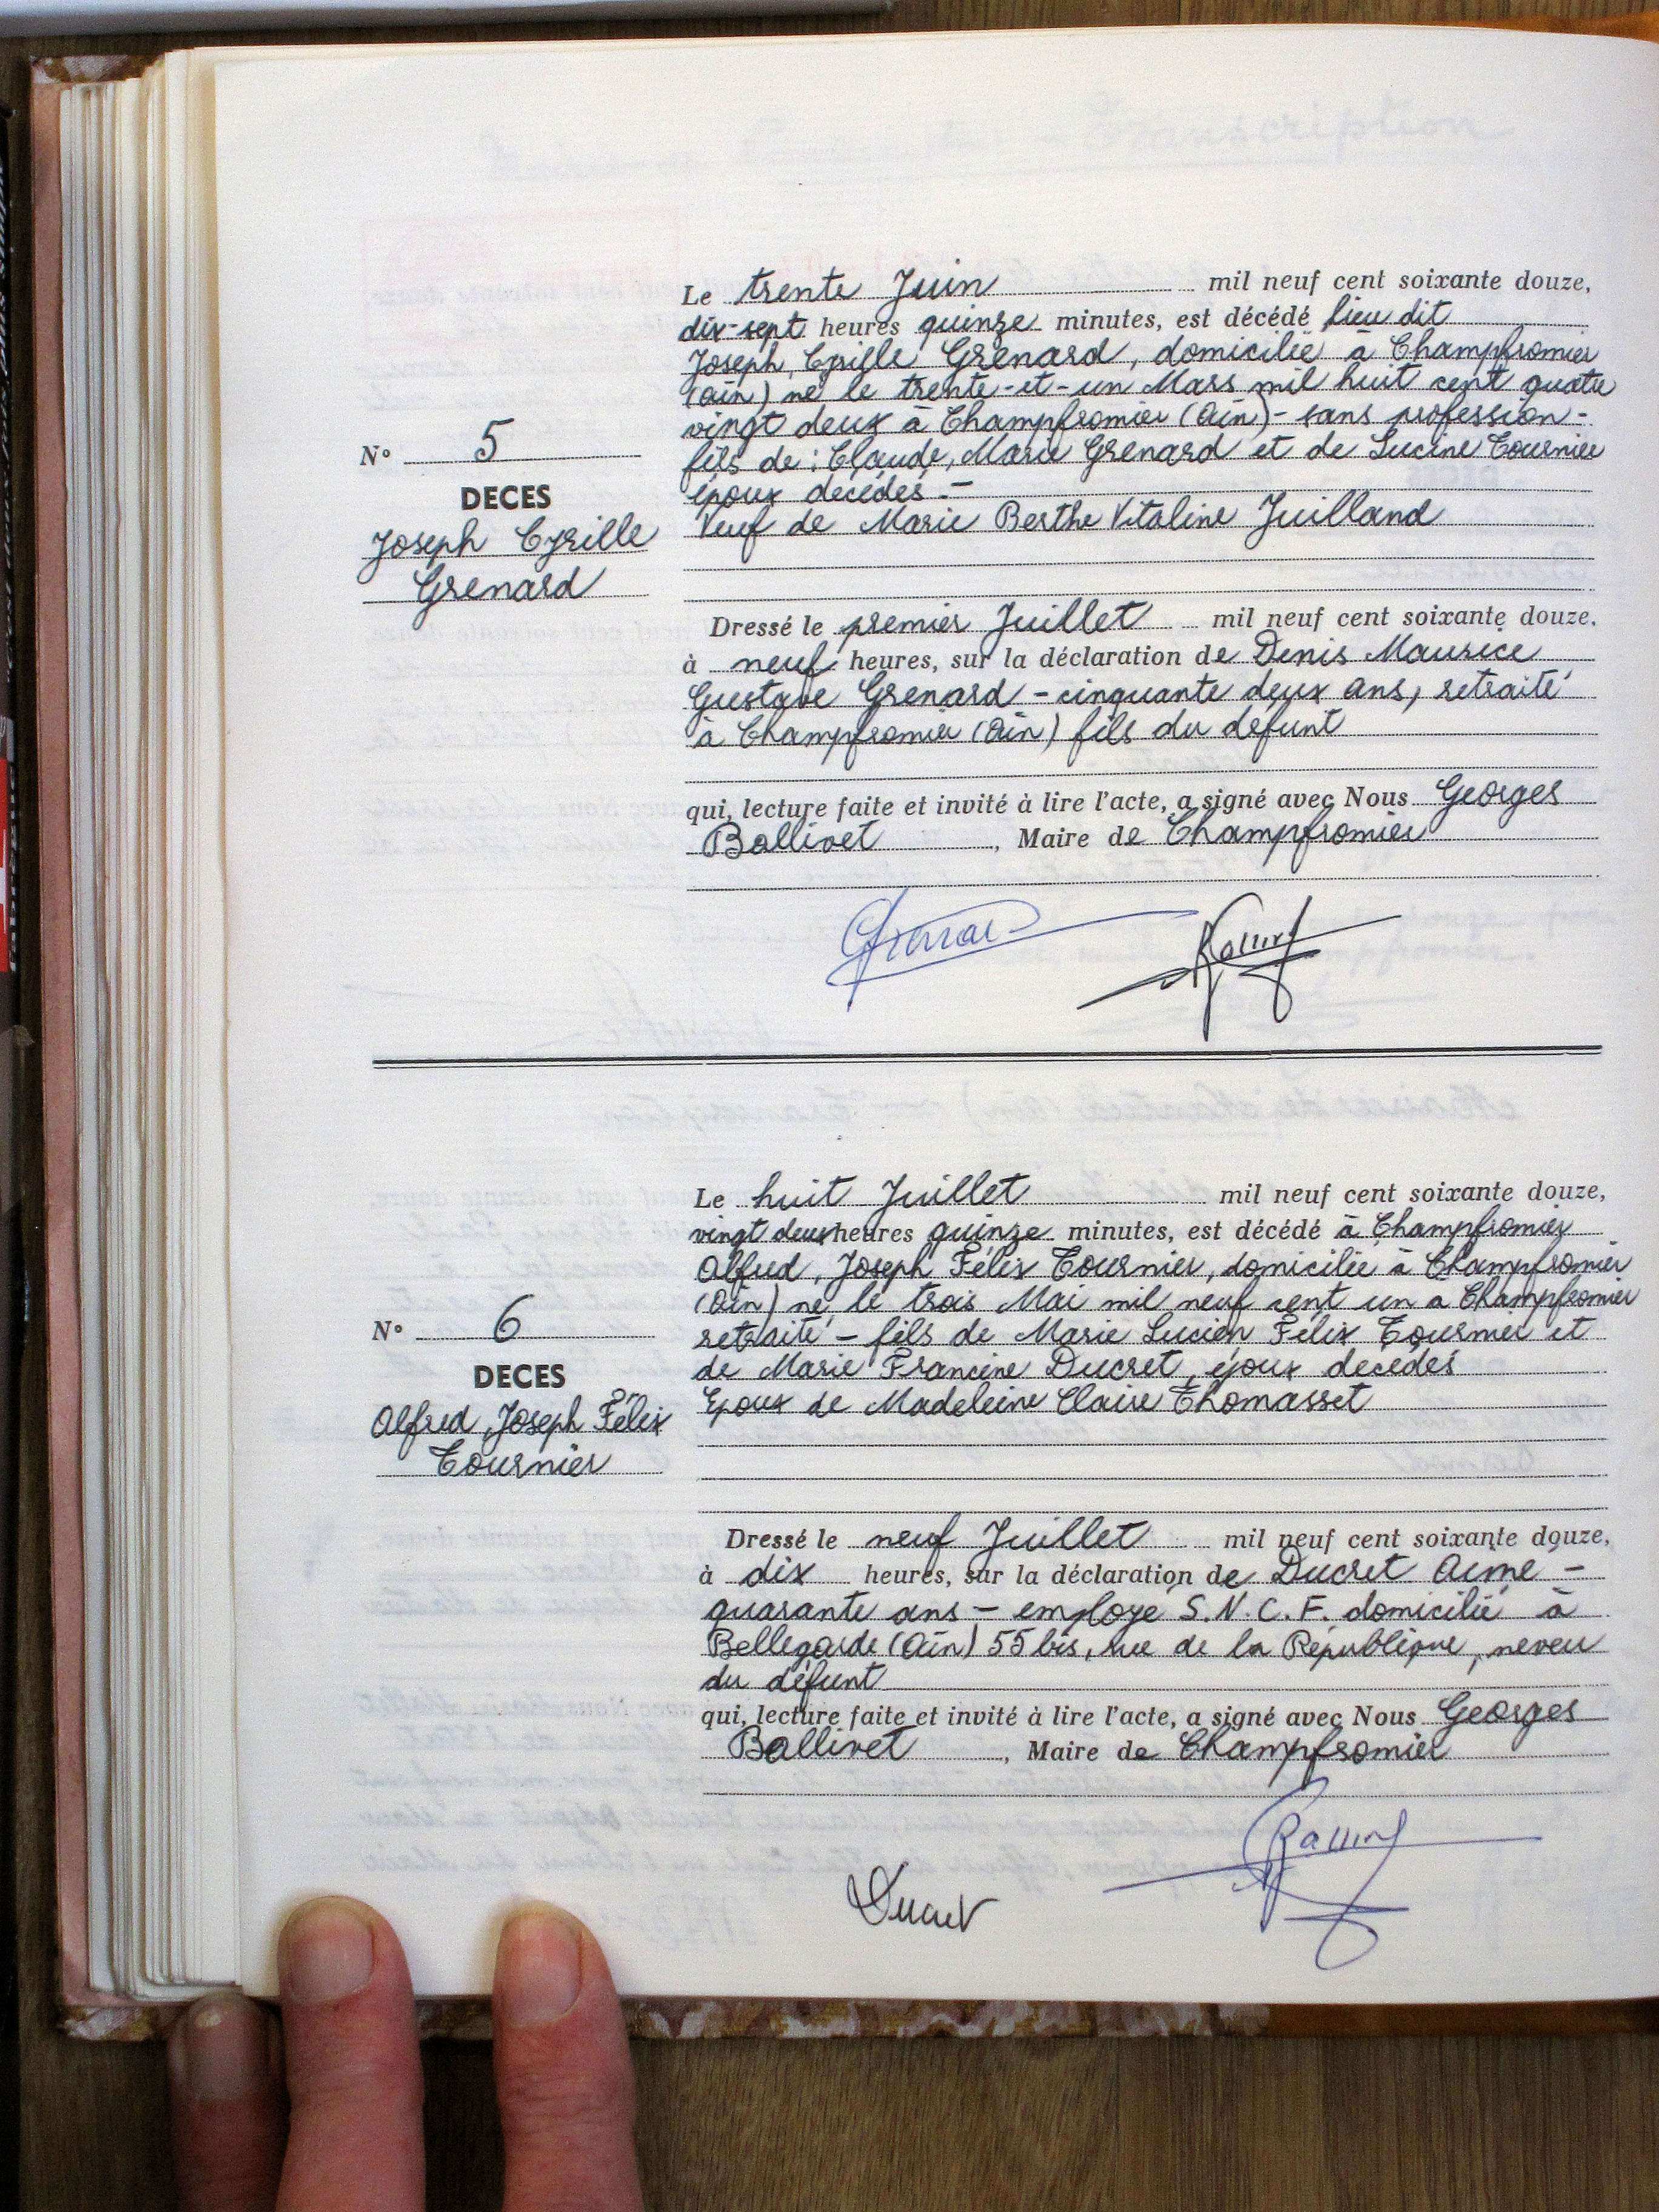 Le trente Juin mil neuf cent soixante douze,
dix-sept heures quinze minutes, est décédé lieu dit
Joseph, Cyrille Grenard, domicilié à Champfromier
(Ain) né le trente-et-un Mars mil huit cent quatre
vingt deux à Champfromier (Ain) - sans profession -
fils de : Claude, Marie Grenard et de Lucine Tournier
époux décédés. -
Veuf de Marie Berthe Vitaline Juilland
N° 5
DECES
Joseph Cyrille
Grenard
Dressé le premier Juillet mil neuf cent soixante douze,
à neuf heures, sur la déclaration de Denis Maurice
Gustave Grenard - cinquante deux ans, retraité
à Champfromier (Ain) fils du défunt
qui, lecture faite et invité à lire l'acte, a signé avec Nous Georges
Ballivet , Maire de Champfromier
Le huit Juillet mil neuf cent soixante douze,
vingt deux heures quinze minutes, est décédé à Champfromier
Alfred, Joseph Félix Tournier, domicilié à Champfromier
(Ain) né le trois Mai mil neuf cent un a Champfromier
retraité - fils de Marie Lucien Félix Tournier et
de Marie Francine Ducret, époux décédés
Epoux de Madeleine Claire Thomasset
N° 6
DECES
Alfred, Joseph Félix
Tournier
Dressé le neuf Juillet mil neuf cent soixante douze,
à dix heures, sur la déclaration de Ducret Aimé -
quarante ans - employé S.N.C.F. domicilié à
Bellegarde (Ain) 55 bis, rue de la République, neveu
du défunt
qui, lecture faite et invité à lire l'acte, a signé avec Nous Georges
Ballivet , Maire de Champfromier
Ducret